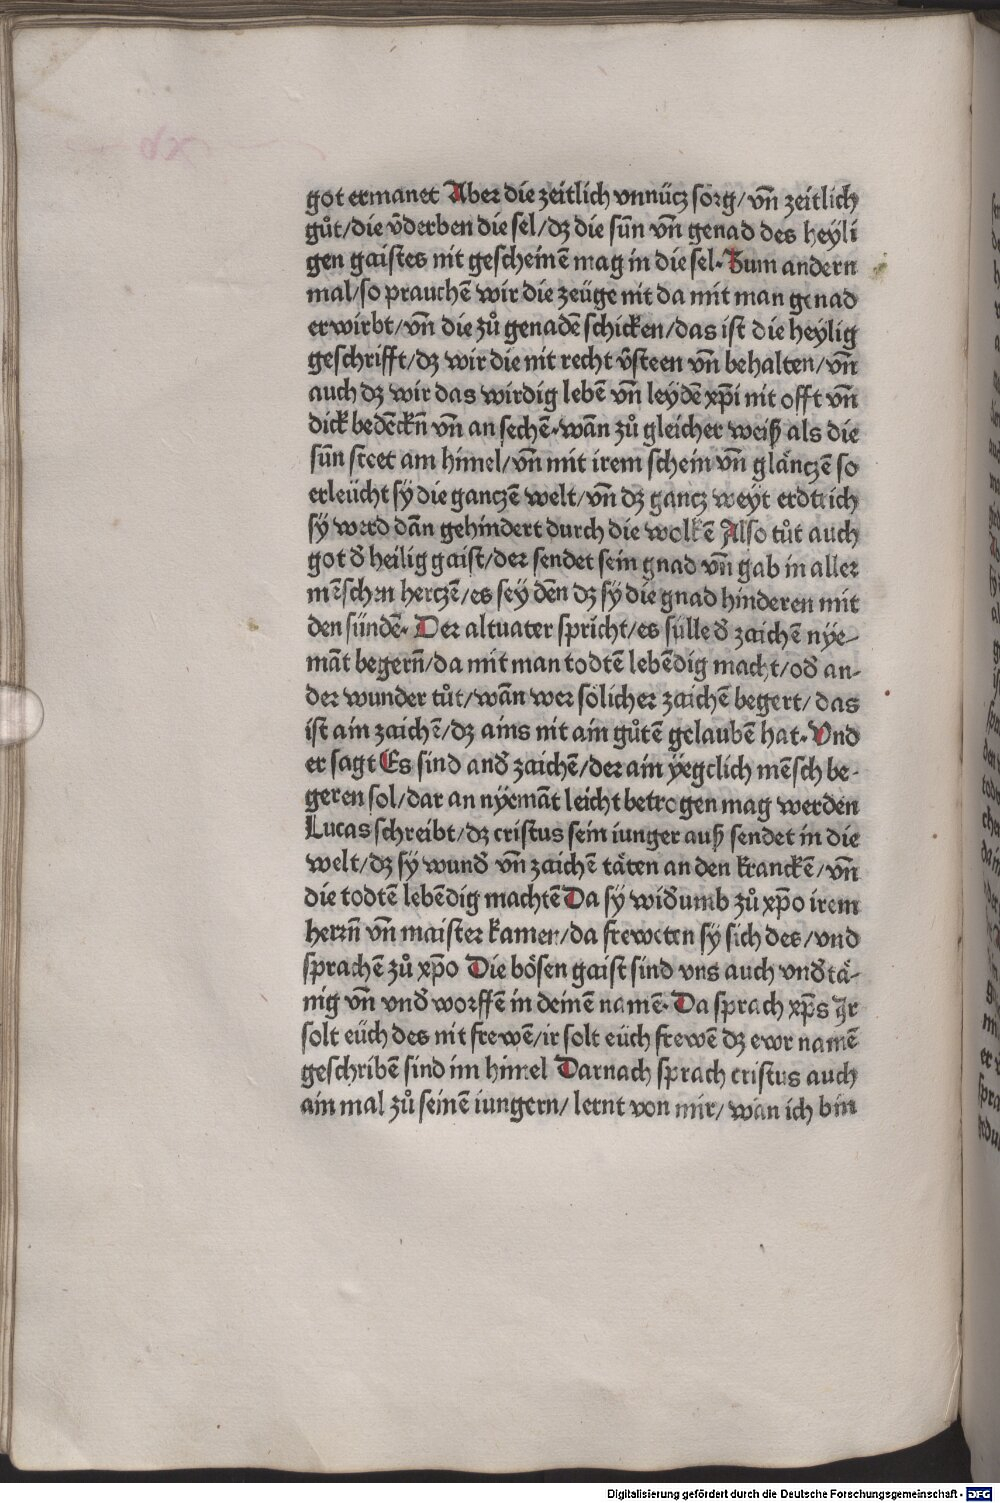 got ermanet Aber die zeitlich vnnücz sorg/ vn̄ zeitlich
gůt/die v̄derben die sel/dz die sūn vn̄ genad des heyli
gen gaistes nit gescheinē mag in die sel. Zum andern
mal/so prauchē wir die zeüge nit da mit man genad
erwirbt/vn̄ die zů genadē schicken/das ist die heylig
geschrifft/dz wir die nit recht v̄steen vn̄ behalten/vn̄
auch dz wir das wirdig lebē vn̄ leydē xp̄i nit offt vn̄
dick bedēckn̄ vn̄ an sechē.wān zů gleicher weiß als die
sūn steet am himel/vn̄ mit irem schein vn̄ gläntzē so
erleücht sÿ die ganczē welt/vn̄ dz gancz weyt erdtrich
sÿ werd dān gehindert durch die wolkē Also tůt auch
got d̄ heilig gaist/der sendet sein gnad vn̄ gab in aller
mēschen hertzē/es sey dēn dz sÿ die gnad hinderen mit
den sündē. Der altuater spricht/es sülle d̄ zaichē nye-
māt begern̄/da mit man todtē lebēdig macht/od̄ an-
der wunder tůt/wān wer sölicher zaichē begert/das
ist ain zaichē/dz ains nit ain gůtē gelaubē hat. Vnd
er sagt Es sind and̄ zaichē/der ain yegclich mēsch be-
geren sol/dar an nyemāt leicht betrogen mag werden
Lucas schreibt/dz cristus sein iunger auß sendet in die
welt/dz sÿ wund̄ vn̄ zaichē täten an den kranckē/vn̄
die todtē lebēdig machtē Da sÿ wid̄umb zů xp̄o irem
herrn̄ vn̄ maister kamen/da freweten sÿ sich des/vnd
sprachē zů xp̄o Die bösen gaist sind vns auch vnd̄tä-
nig vn̄ vnd̄ worffē in deinē namē. Da sprach xp̄s Jr
solt eüch des nit frewē/ir solt eüch frewē dz ewr namē
geschribē sind im himel Darnach sprach cristus auch
ain mal zů seinē iungern/ lernt von mir/ wan ich bin
Digitalisierung gefördert durch die Deutsche Forschungsgemeinschaft - DFG